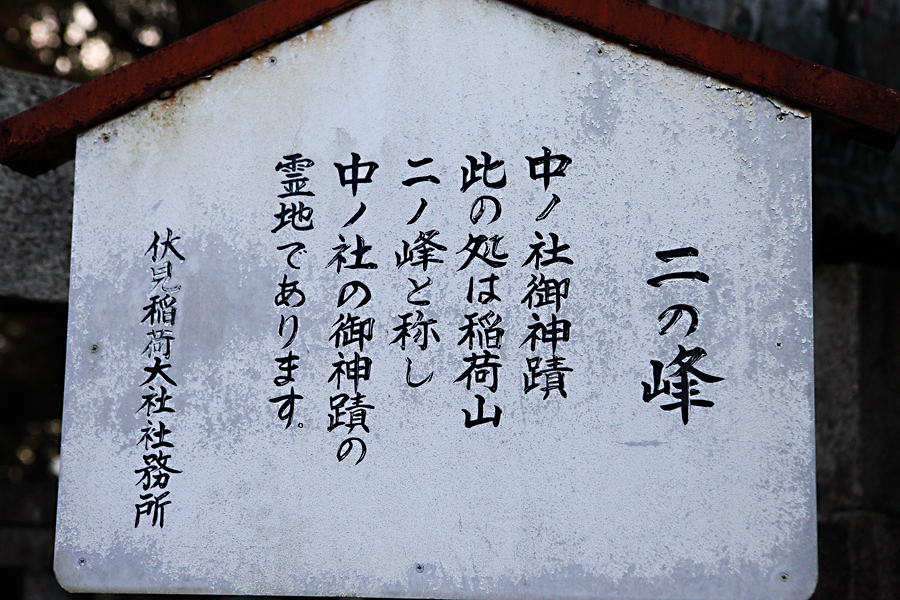 二の峰
中ノ社御神蹟
此の処は稲荷山
二ノ峰と称し
中ノ社の御神蹟の
霊地であります。
伏見稲荷大社社務所